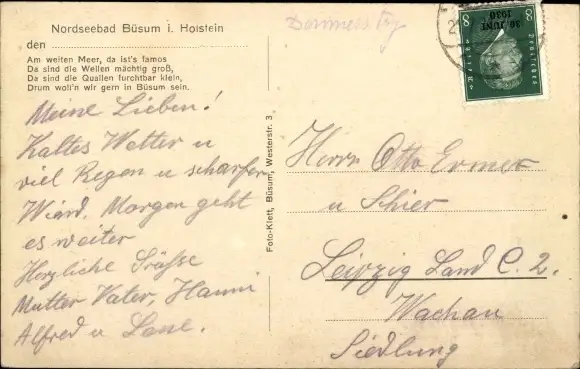 Nordseebad Büsum i. Holstein
den
Am weiten Meer, da ist's famos
Da sind die Wellen mächtig groß,
Da sind die Quallen furchtbar klein,
Drum woll'n wir gern in Büsum sein.
Meine Lieben!
Kaltes Wetter u
viel Regen u scharfen
Wind. Morgen geht
es weiter
Herzliche Grüsse
Mutter Vater, Hanni
Alfred u
Foto-Klett, Büsum, Westerstr. 3
30. JUNI
1930
8 8
Deutsches Reich
Herrn Otto Ermer
u Schier
Leipzig Land C. 2.
Wachau
Siedlung